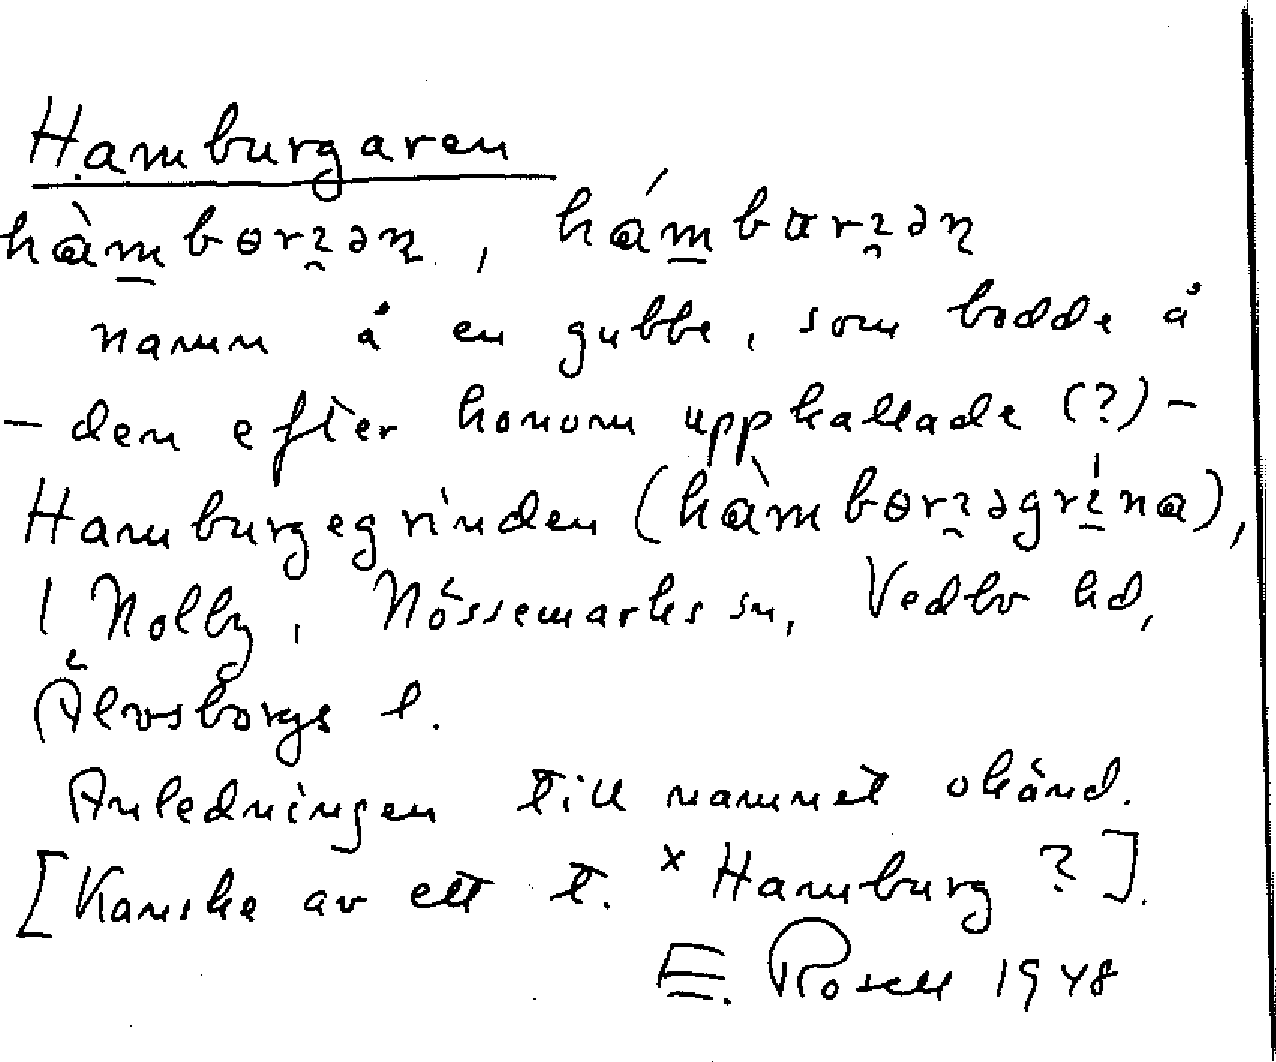 Hamburgaren
hàmbɵrʒən, hámbɵrʒən
namn å en gubbe, som bodde å
- den efter honom uppkallade (?) -
Hamburgegrinden (hàmbɵrʒəgrína),
i Nolby, Nössemarks sn, Vedbo hd,
Älvsborgs l.
Anledningen till namnet okänd.
[Kanske av ett t. ×Hamburg ?].
E. Rosell 1948